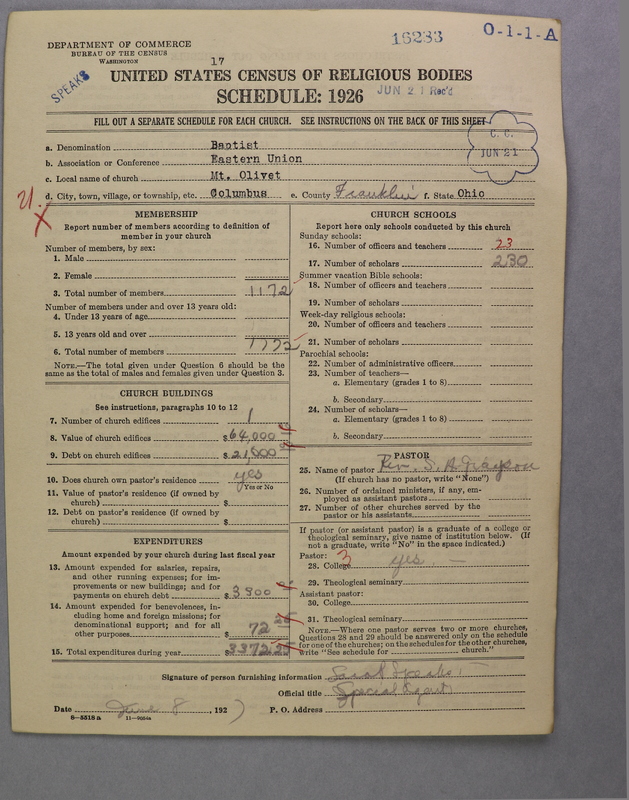 16233
O-1-1-A
DEPARTMENT OF COMMERCE
BUREAU OF THE CENSUS
WASHINGTON
17
SPEAKS
UNITED STATES CENSUS OF RELIGIOUS BODIES
SCHEDULE: 1926
JUN 21 Rec'd
FILL OUT A SEPARATE SCHEDULE FOR EACH CHURCH. SEE INSTRUCTIONS ON THE BACK OF THIS SHEET
C. C.
JUN 21
a. Denomination Baptist
b. Association or Conference Eastern Union
c. Local name of church Mt. Olivet
d. City, town, village, or township, etc. Columbus e. County Franklin f. State Ohio
21
X
MEMBERSHIP
Report number of members according to definition of
member in your church
Number of members, by sex:
1. Male
2. Female
3. Total number of members 1172
Number of members under and over 13 years old:
4. Under 13 years of age
5. 13 years old and over
6. Total number of members 1772
NOTE.—The total given under Question 6 should be the
same as the total of males and females given under Question 3.
CHURCH BUILDINGS
See instructions, paragraphs 10 to 12
7. Number of church edifices 1
8. Value of church edifices $64,000
9. Debt on church edifices $21,000
10. Does church own pastor's residence yes
Yes or No
11. Value of pastor's residence (if owned by
church) $
12. Debt on pastor's residence (if owned by
church) $
EXPENDITURES
Amount expended by your church during last fiscal year
13. Amount expended for salaries, repairs,
and other running expenses; for im-
provements or new buildings; and for
payments on church debt $3300
14. Amount expended for benevolences, in-
cluding home and foreign missions; for
denominational support; and for all
other purposes $72 25
15. Total expenditures during year $3372 25
CHURCH SCHOOLS
Report here only schools conducted by this church
Sunday schools:
16. Number of officers and teachers 23
17. Number of scholars 230
Summer vacation Bible schools:
18. Number of officers and teachers
19. Number of scholars
Week-day religious schools:
20. Number of officers and teachers
21. Number of scholars
Parochial schools:
22. Number of administrative officers
23. Number of teachers—
a. Elementary (grades 1 to 8)
b. Secondary
24. Number of scholars—
a. Elementary (grades 1 to 8)
b. Secondary
PASTOR
25. Name of pastor Rev. S. A. Grayson
(If church has no pastor, write "None")
26. Number of ordained ministers, if any, em-
ployed as assistant pastors
27. Number of other churches served by the
pastor or his assistants
If pastor (or assistant pastor) is a graduate of a college or
theological seminary, give name of institution below. (If
not a graduate, write "No" in the space indicated.)
Pastor: 3
28. College yes —
29. Theological seminary
Assistant pastor:
30. College
31. Theological seminary
NOTE.—Where one pastor serves two or more churches,
Questions 28 and 29 should be answered only on the schedule
for one of the churches; on the schedules for the other churches,
write "See schedule for church."
Signature of person furnishing information Sarah Speaks
Official title Special Agent
Date June 8, 1927 P. O. Address
8-5518 a